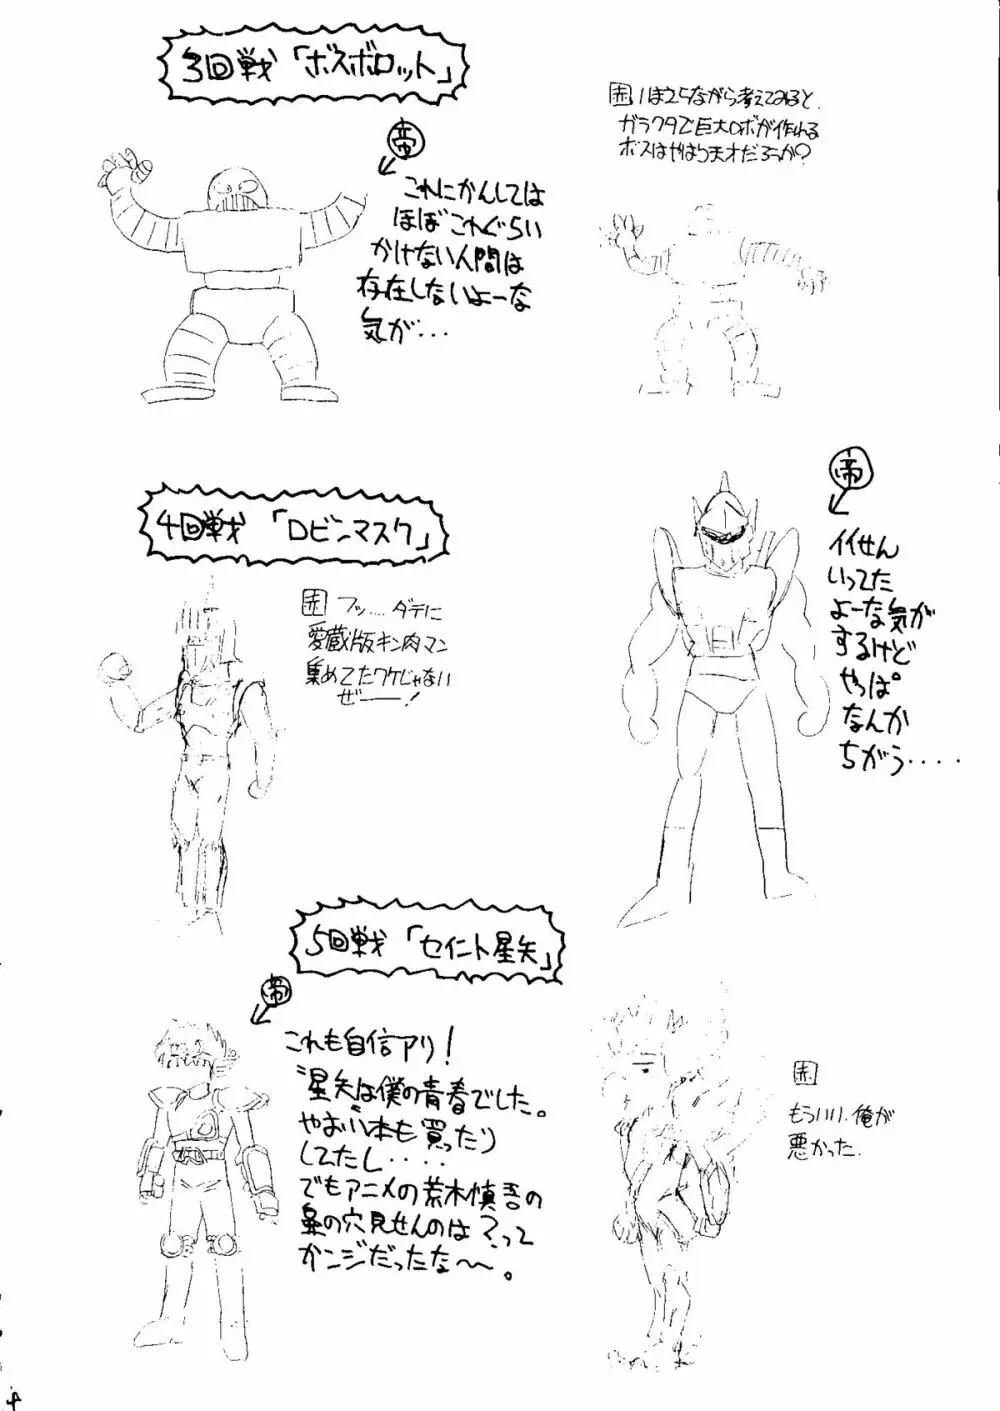 3回戦「ボスボロット」
帝
これにかんしては
ほぼこれぐらい
かけない人間は
存在しないよーな
気が・・・
赤 しほ25ながら考えてみると、
ガラクタで巨大ロボが作れる
ボスはやはり天才だろうか?
4回戦「ロビンマスク」
赤 フッ……ダテに
愛蔵版キン肉マン
集めてたワケじゃない
ぜ──!
帝
イイせん
いってた
よーな気が
するけど
やっぱ
なんか
ちがう・・・・
5回戦「セイント星矢」
帝
これも自信アリ!
"星矢"は僕の青春でした。
やおい本も買ったり
してたし・・・・
でもアニメの荒木慎吾の
鼻の穴見せんのは?って
カンジだったな〜。
赤
もういい、俺が
悪かった.
4